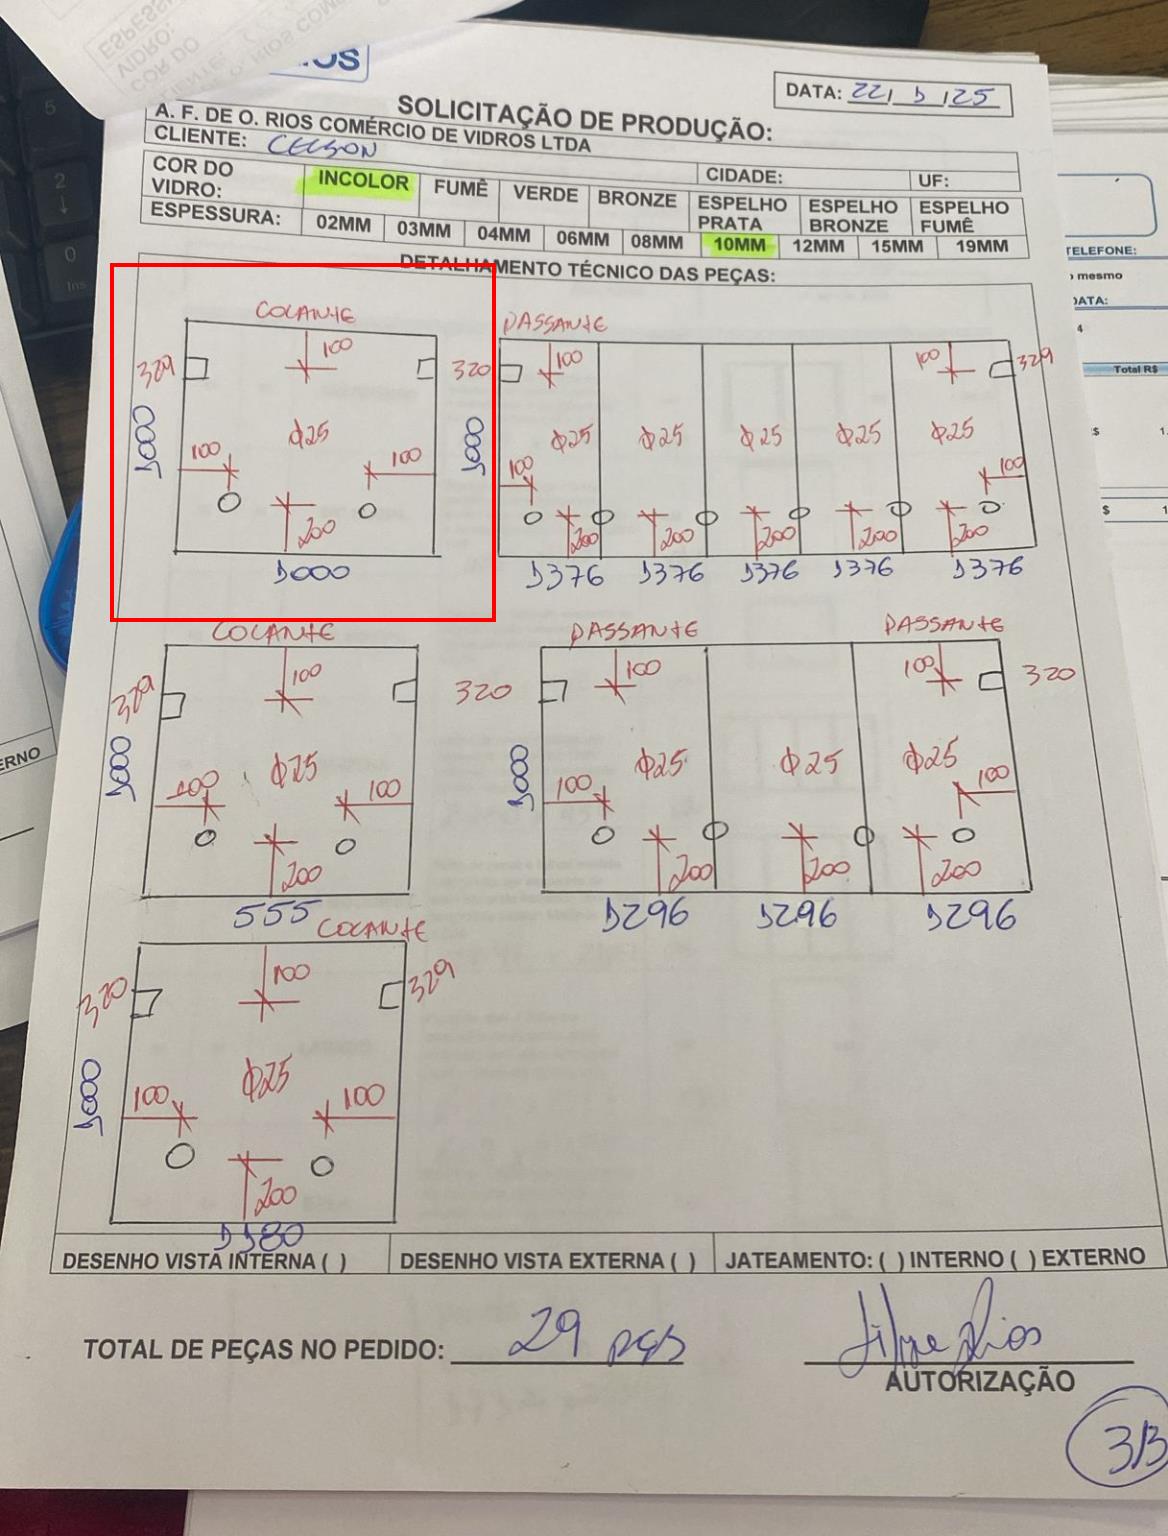 ESPESS
VIDRO:
COR DO
DATA: 22/1/25
SOLICITAÇÃO DE PRODUÇÃO:
A. F. DE O. RIOS COMÉRCIO DE VIDROS LTDA
CLIENTE: CELSON
CIDADE: UF:
COR DO VIDRO: INCOLOR FUMÊ VERDE BRONZE ESPELHO PRATA ESPELHO BRONZE ESPELHO FUMÊ
ESPESSURA: 02MM 03MM 04MM 06MM 08MM 10MM 12MM 15MM 19MM
DETALHAMENTO TÉCNICO DAS PEÇAS:
COLANTE
329 100
1000 Φ25
100 100
200
1000
PASSANTE
320 100 100 329
1000 Φ25 Φ25 Φ25 Φ25 Φ25
100 100
200 200 200 200 200
1376 1376 1376 1376 1376
COLANTE
329 100
1000 Φ25
100 100
200
555
PASSANTE PASSANTE
320 100 100 320
1000 Φ25 Φ25 Φ25
100 100
200 200 200
1296 1296 1296
COLANTE
320 100 329
1000 Φ25
100 100
200
1180
DESENHO VISTA INTERNA ( ) DESENHO VISTA EXTERNA ( ) JATEAMENTO: ( ) INTERNO ( ) EXTERNO
TOTAL DE PEÇAS NO PEDIDO: 29 pçs
Filipe Rios
AUTORIZAÇÃO
3/3
TELEFONE:
o mesmo
DATA:
Total R$
ERNO